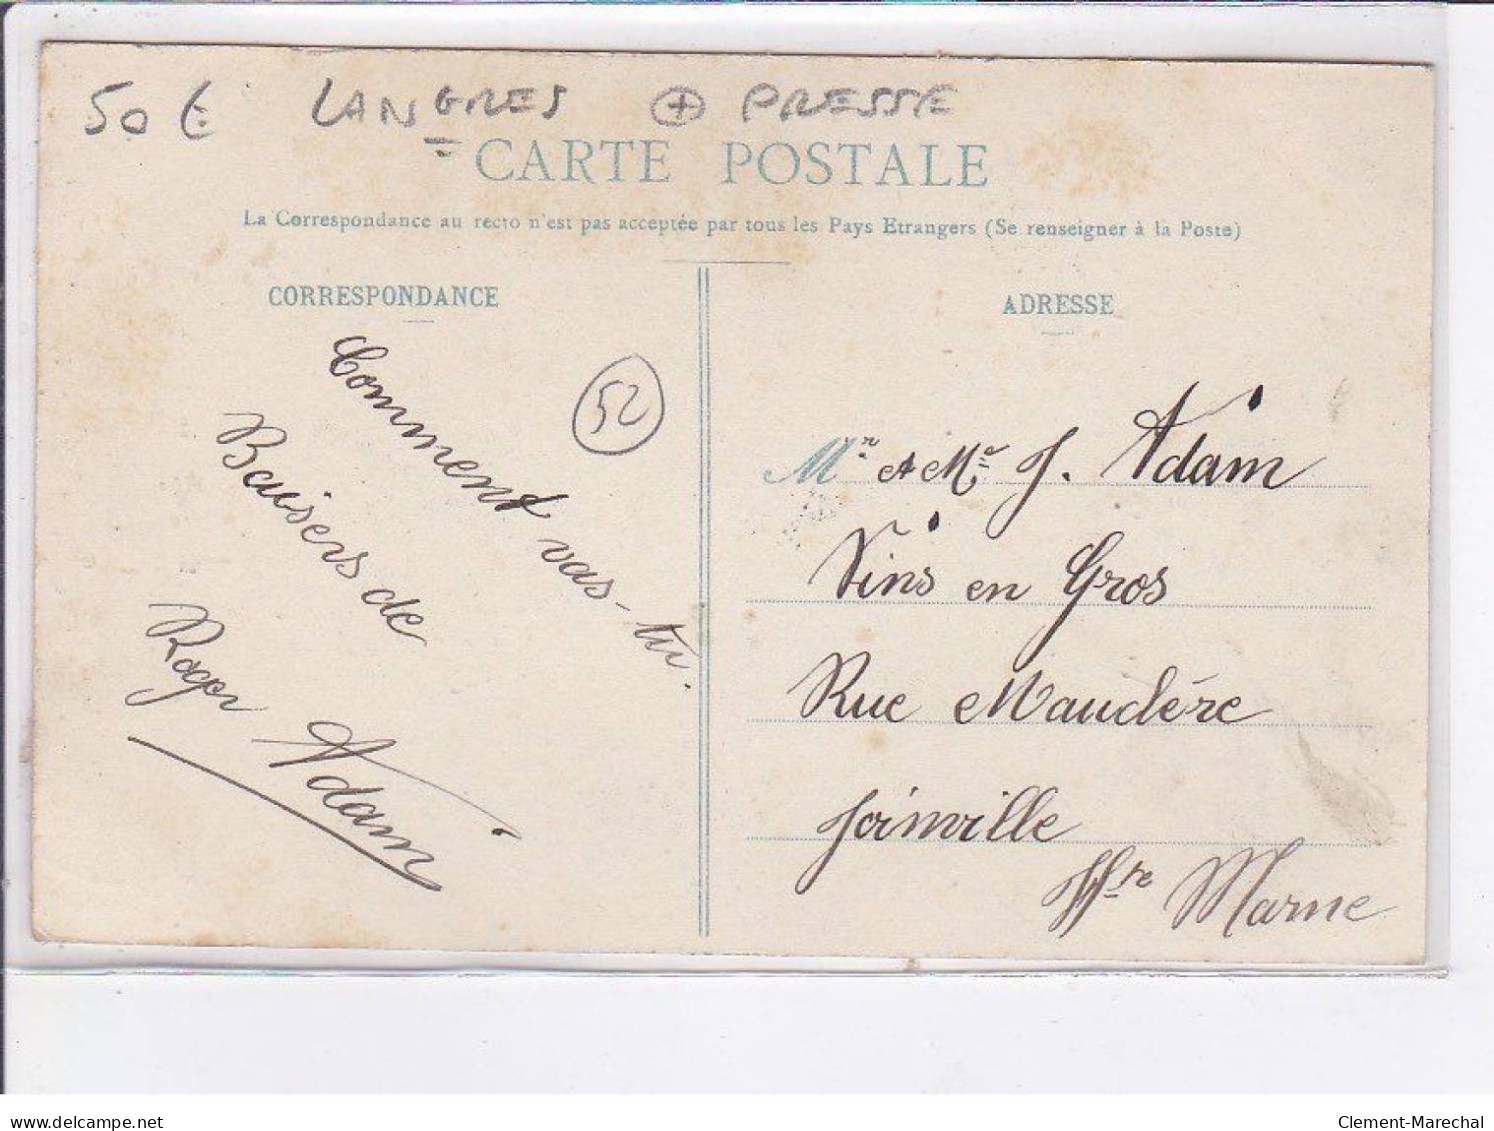 50 € LANGRES + PRESSE
CARTE POSTALE
La Correspondance au recto n'est pas acceptée par tous les Pays Etrangers (Se renseigner à la Poste)
CORRESPONDANCE
52
Comment vas-tu.
Baisers de
Roger Adam
ADRESSE
Mr et Me J. Adam
Vins en Gros
Rue Mauclère
Joinville
Hte Marne
delcampe.net
Clement-Marechal